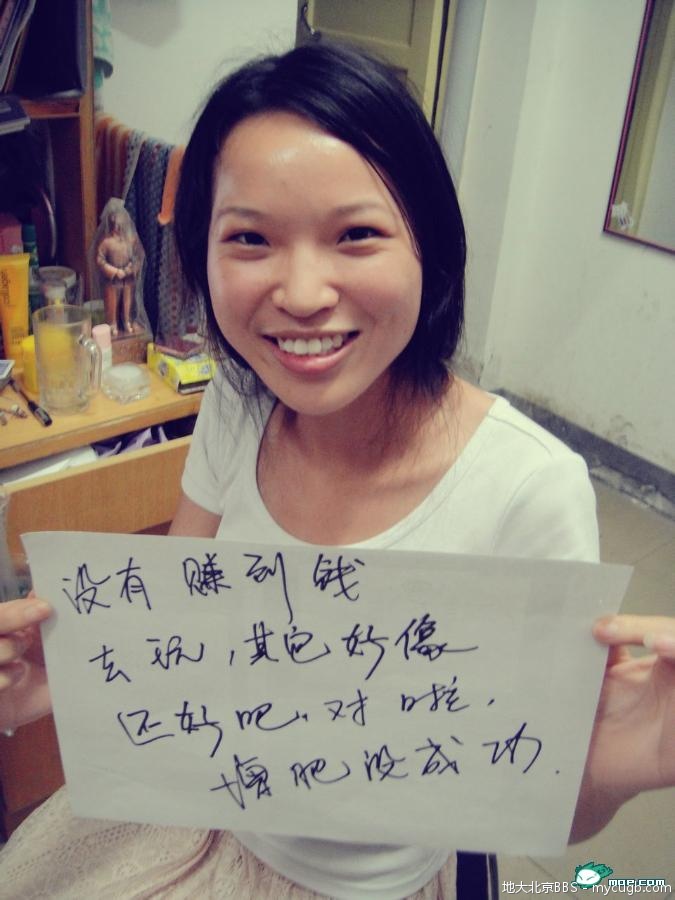 没有赚到钱
去玩，其它好像
还好吧。对啦，
增肥没成功.
collagen
地大北京BBS - mycugb.com
moe.com